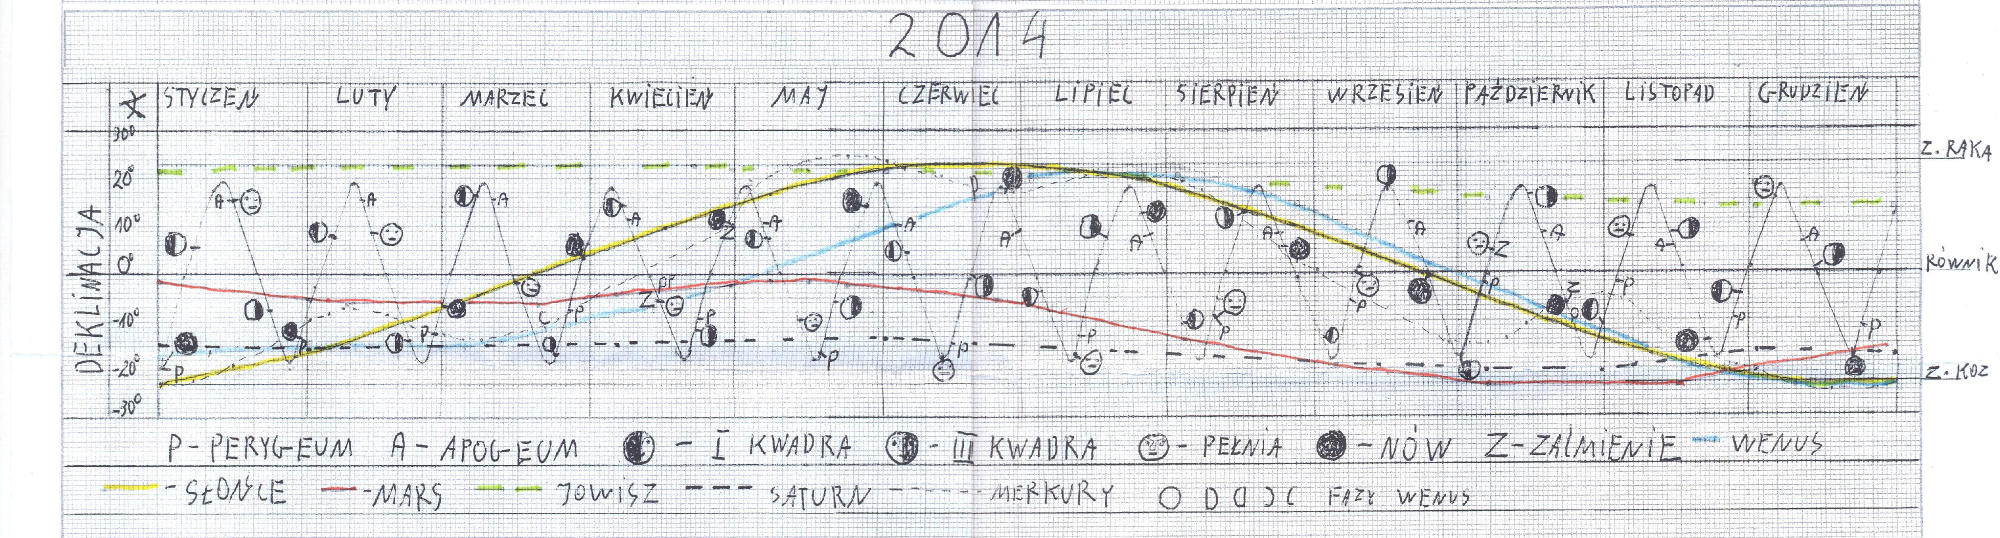 2014
X STYCZEŃ LUTY MARZEC KWIECIEŃ MAJ CZERWIEC LIPIEC SIERPIEŃ WRZESIEŃ PAŹDZIERNIK LISTOPAD GRUDZIEŃ
30°
Z. RAKA
20°
10°
DEKLINACJA
0°
RÓWNIK
-10°
-20°
Z. KOZ
-30°
P - PERYGEUM A - APOGEUM - I KWADRA - III KWADRA - PEŁNIA - NÓW Z - ZAĆMIENIE WENUS
- SŁOŃCE - MARS JOWISZ SATURN MERKURY FAZY WENUS